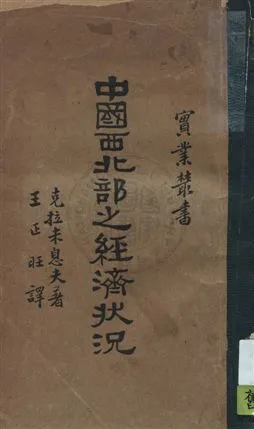 實業叢書
中國西北部之經濟狀況
克拉米息夫著
王正旺譯
舊